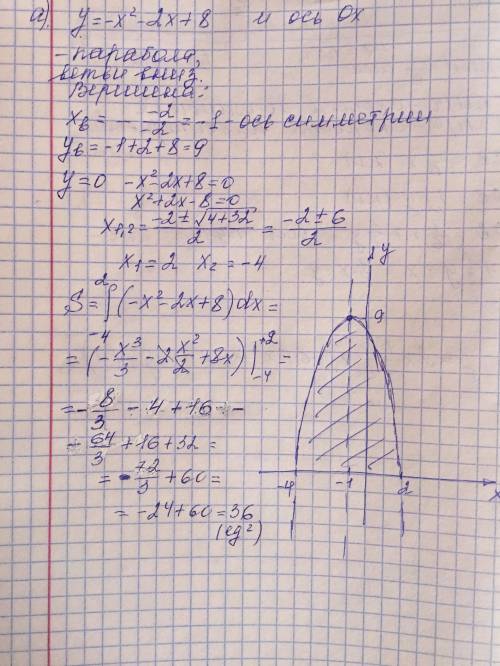 а) y=-x²-2x+8 и ось Ox
- парабола,
ветви вниз.
Вершина:
xв = - -2/-2 = -1 - ось симметрии
yв = -1+2+8=9
y=0 -x²-2x+8=0
x²+2x-8=0
x1,2 = (-2±√(4+32))/2 = (-2±6)/2
x1=2 x2=-4
S = ∫ from -4 to 2 (-x²-2x+8)dx =
= (-x³/3 - 2x²/2 + 8x) |₋₄⁺² =
= -8/3 - 4 + 16 -
- 64/3 + 16 + 32 =
= -72/3 + 60 =
= -24+60=36
(ед²)
y
9
-4 -1 2 x